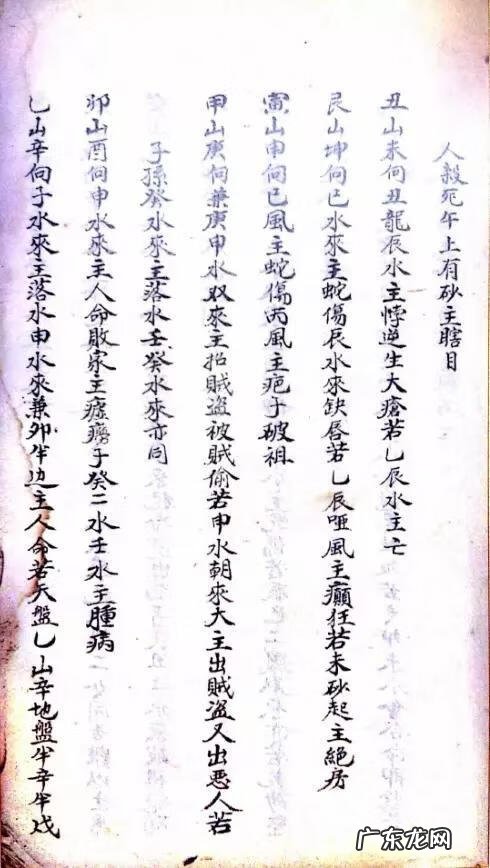 人殺死午上有砂主瞎目
丑山未向丑龍辰水主悖逆生大瘡若乙辰水主亡
艮山坤向巳水來主蛇傷辰水來缺唇若乙辰哑風主癲狂若未砂起主絕房
寅山申向巳風主蛇傷丙風主疤子破祖
甲山庚向兼庚申水双來主招賊盗被賊偷若申水朝來大主出賊盗又出惡人若
子孫癸水來主落水壬癸水來亦同
卯山酉向申水來主人命敗家主瘝癆子癸二水壬水主腫病
乙山辛向子水來主落水申水來兼卯半边主人命若天盤乙山辛地盤半辛半戌
广东龙网